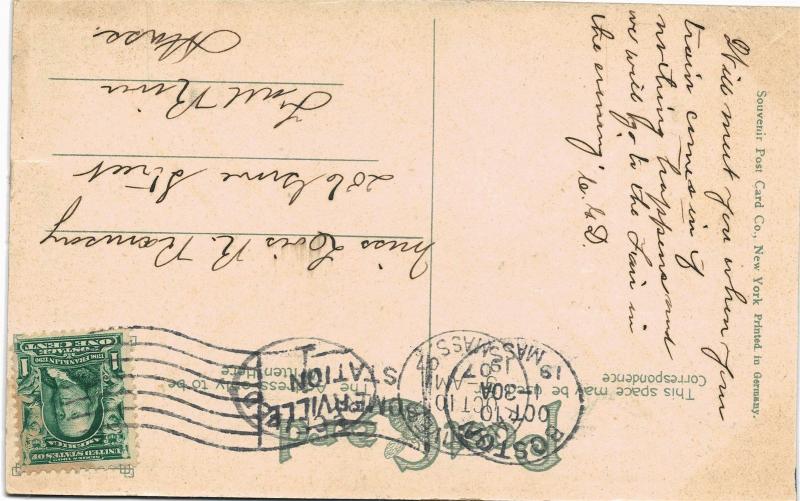 Post Card
This space may be used for
Correspondence
The
Address only to be
Written Here
Will meet you when your
train comes in if
nothing happens and
we will go to the Fair in
the evening. L. G. D.
Miss Lois R. Ramsay
206 Grove Street
Fall River
Mass.
Souvenir Post Card Co., New York Printed in Germany.
BOSTON
OCT 10
30A
MASS.
OCT 10
-AM
07
MASS
SOMERVILLE
STATION
SERIES 1902
UNITED STATES OF
AMERICA
1 1
1706 FRANKLIN 1790
POSTAGE
ONE CENT